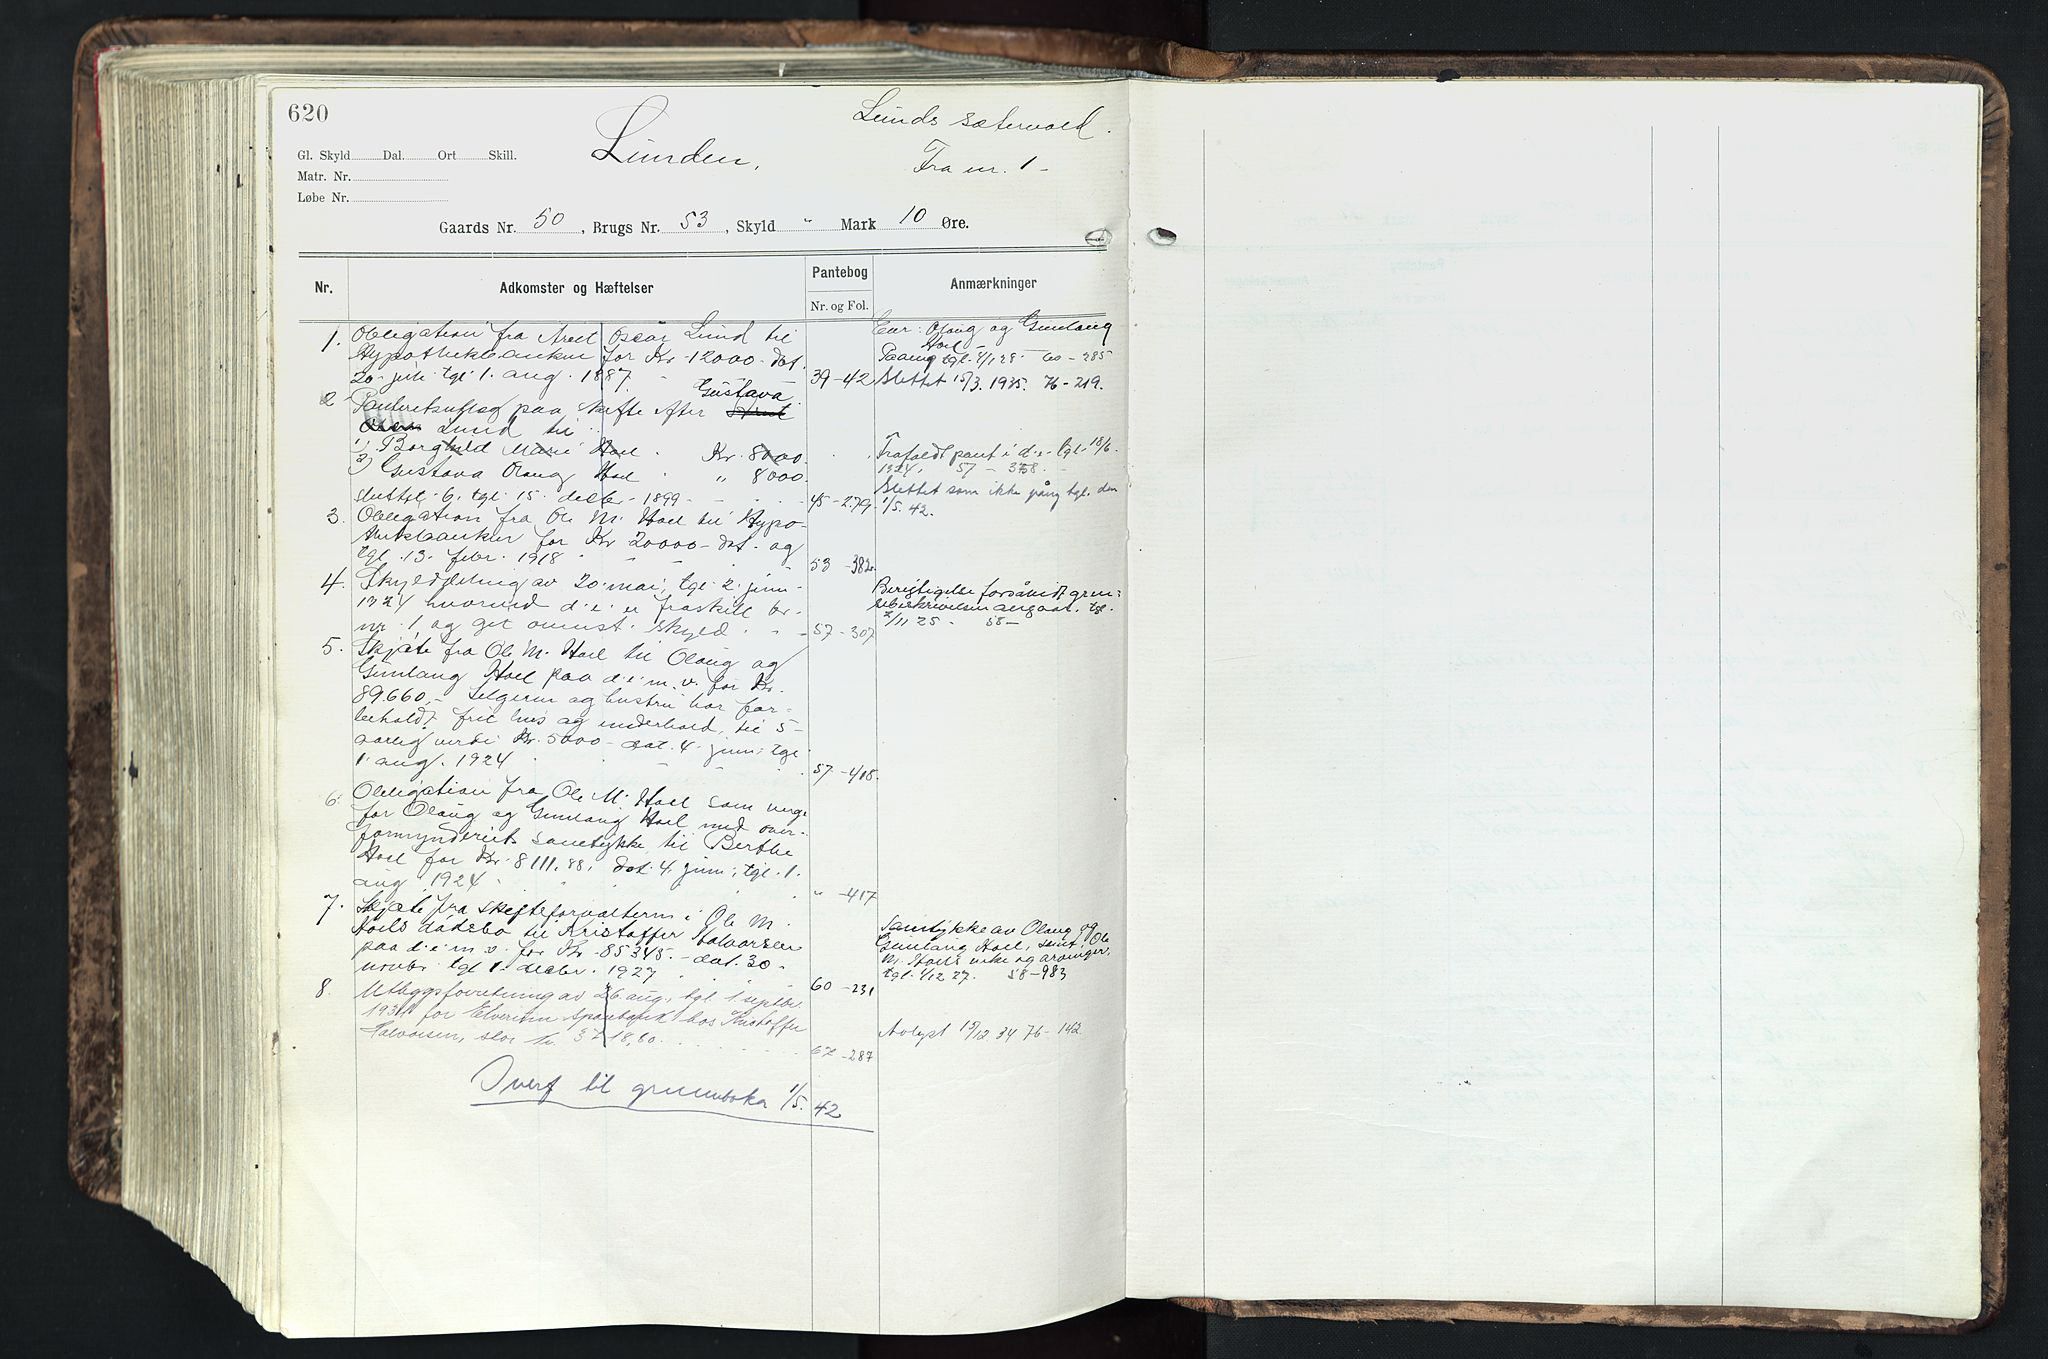 620
Lunden,
Lunds sætervold.
Fra nr. 1 -
Gl. Skyld Dal. Ort Skill.
Matr. Nr.
Løbe Nr.
Gaards Nr. 50, Brugs Nr. 53, Skyld " Mark 10 Øre.
Nr.
Adkomster og Hæftelser
Pantebog
Nr. og Fol.
Anmærkninger
1. Obligation fra Axel Oscar Lund til
Hypothekbanken for Kr 12000 - dat.
20 juli tgl. 1. aug. 1887. 39-42
Olaug og Gunlaug
Hoel
60-285
Slettet 15/3. 1935. 76-219.
2 Panteretsutlæg paa skifte efter Gustava
Lund til
1) Borghild Marie Hoel Kr. 8000.
2) Gustava Olaug Hoel " 8000.
sluttet 6, tgl. 15. decbr. 1899 45-279.
Frafaldt pant i d.e. tgl. 18/6
1924. 57 - 358.
Slettet som ikke pång tgl. den
1/5. 42.
3. Obligation fra Ole M. Hoel til Hypo-
thekbanken for Kr 20000 - dat. og
tgl. 13. febr. 1918 53-382.
4. Skylddeling av 20. mai, tgl. 2. juni
1924 hvorved d.e. er fraskilt br.
nr. 1 og git ovennst. skyld. 57-307
Berigtigelse forsåvidt gren-
sebeskrivelsen angaar, tgl.
2/11 25 - 58-
5. Skjøte fra Ole M. Hoel til Olaug og
Gunlaug Hoel paa d.e. m.v. for Kr.
89660,- Selgeren og hustru har for-
beholdt frit hus og underhold, til 5-
aarlig verdi Kr. 5000 - dat. 4. juni, tgl.
1. aug. 1924 57-415.
6. Obligation fra Ole M. Hoel som verge
for Olaug og Gunlaug Hoel med over-
formynderiets samtykke til Berthe
Hoel for Kr. 8111.88, dat. 4. juni, tgl. 1.
aug. 1924 " -417
7. Skjøte fra skifteforvalteren i Ole M.
Hoels dødsbo til Kristoffer Halvorsen
paa d.e. m.v. for Kr. 85345.- dat. 30
novbr. tgl 1. decbr. 1927 60-231
Samtykke av Olaug og
Gunlaug Hoel, samt Ole
M. Hoels enke og arvinger,
tgl. 1/12 27. 58-983
8. Utleggsforretning av 26 aug., tgl 1. septbr.
1931 for Elverum Sparebank hos Kristoffer
Halvorsen, stor kr. 3718,80. 67-287
Avlyst 15/12 34 76-142
Overf til grunnboka 1/5. 42